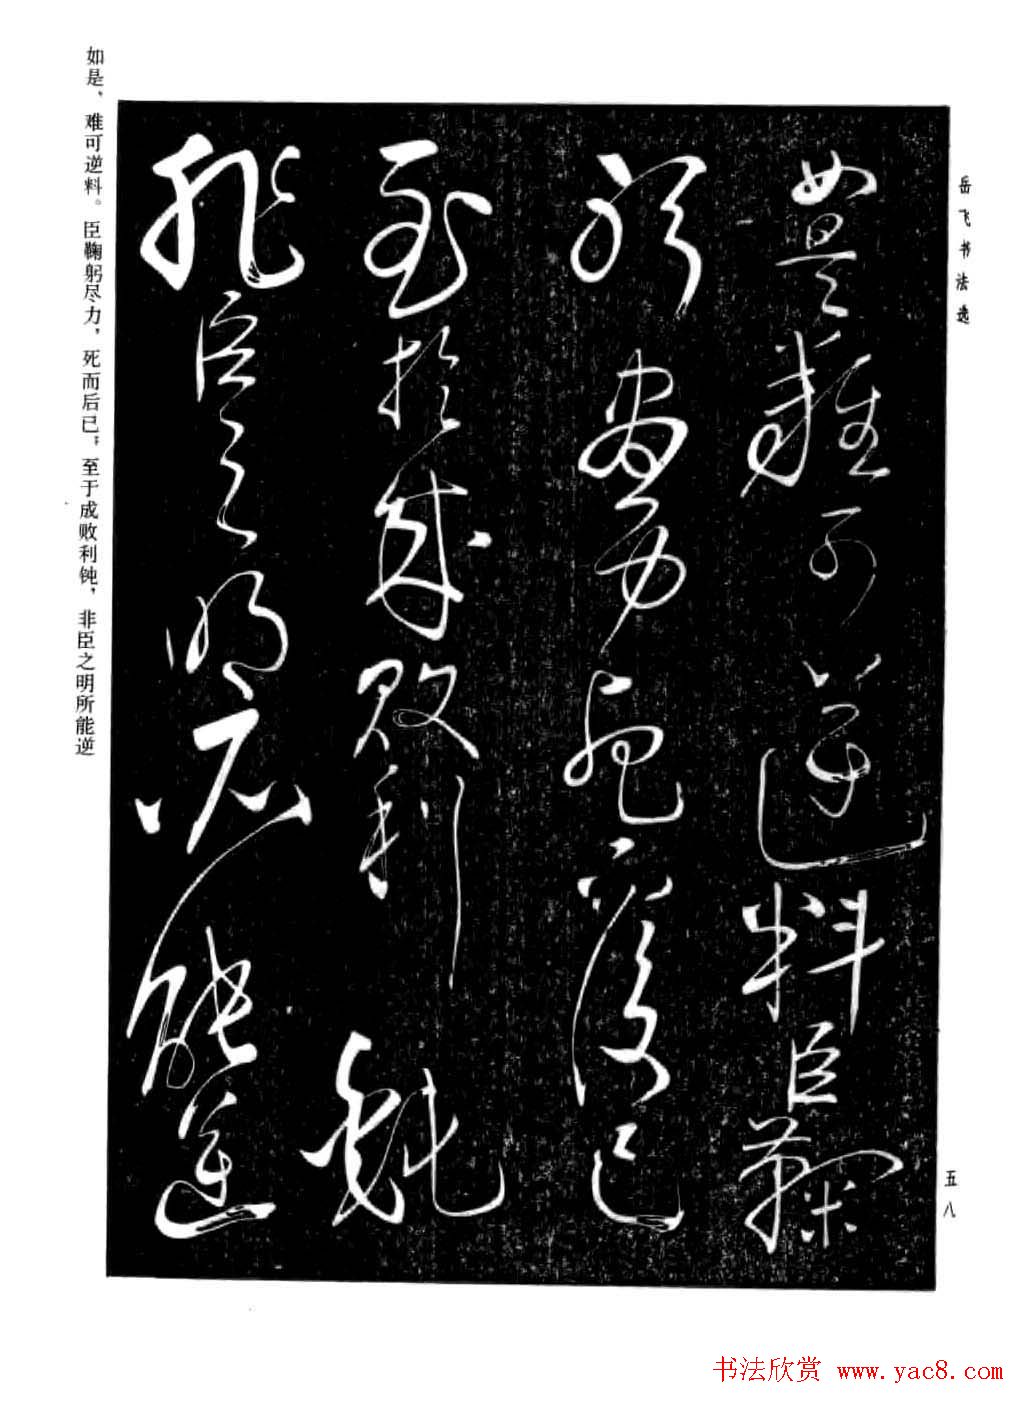 岳飞书法选
如是難可逆料臣鞠
躬盡力死而後已
至於成敗利鈍
非臣之明所能逆
如是，难可逆料。臣鞠躬尽力，死而后已；至于成败利钝，非臣之明所能逆
五八
书法欣赏 www.yac8.com